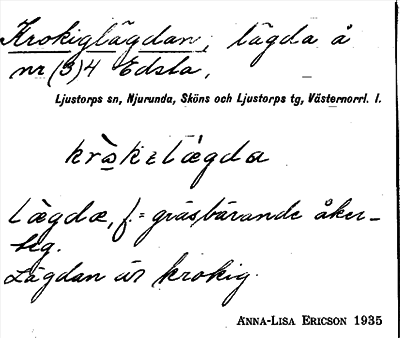 Krokiglägdan, lägda å
nr (3)4 Edsta,
Ljustorps sn, Njurunda, Sköns och Ljustorps tg, Västernorrl. l.
lägdæ, f = gräsbärande åker-
teg.
Lägdan är krokig.
ANNA-LISA ERICSON 1935